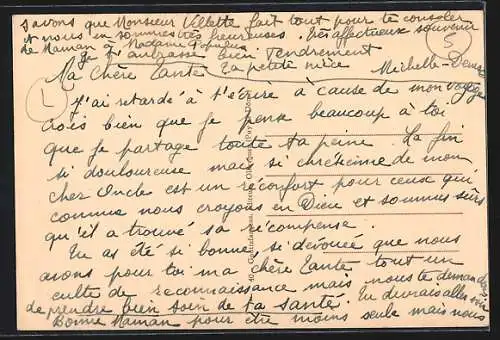 savons que Monsieur Villette fait tout pour te consoler
et nous en sommes très heureuses. Très affectueux souvenir
de Maman à Madame Populus
Je t'embrasse bien tendrement
Ta petite nièce
Michelle-Denise
S
L
Ma chère Tante
J'ai retardé à t'écrire à cause de mon voyage
crois bien que je pense beaucoup à toi
que je partage toute ta peine. La fin
si douloureuse mais si chrétienne de mon
cher Oncle est un réconfort pour ceux qui
comme nous croyons en Dieu et sommes sûrs
qu'il a trouvé sa récompense.
Tu as été si bonne, si dévouée que nous
avons pour toi ma chère Tante tout un
culte de reconnaissance mais nous te demandons
de prendre bien soin de ta santé. Tu devrais aller voir
Bonne Maman pour être moins seule mais nous